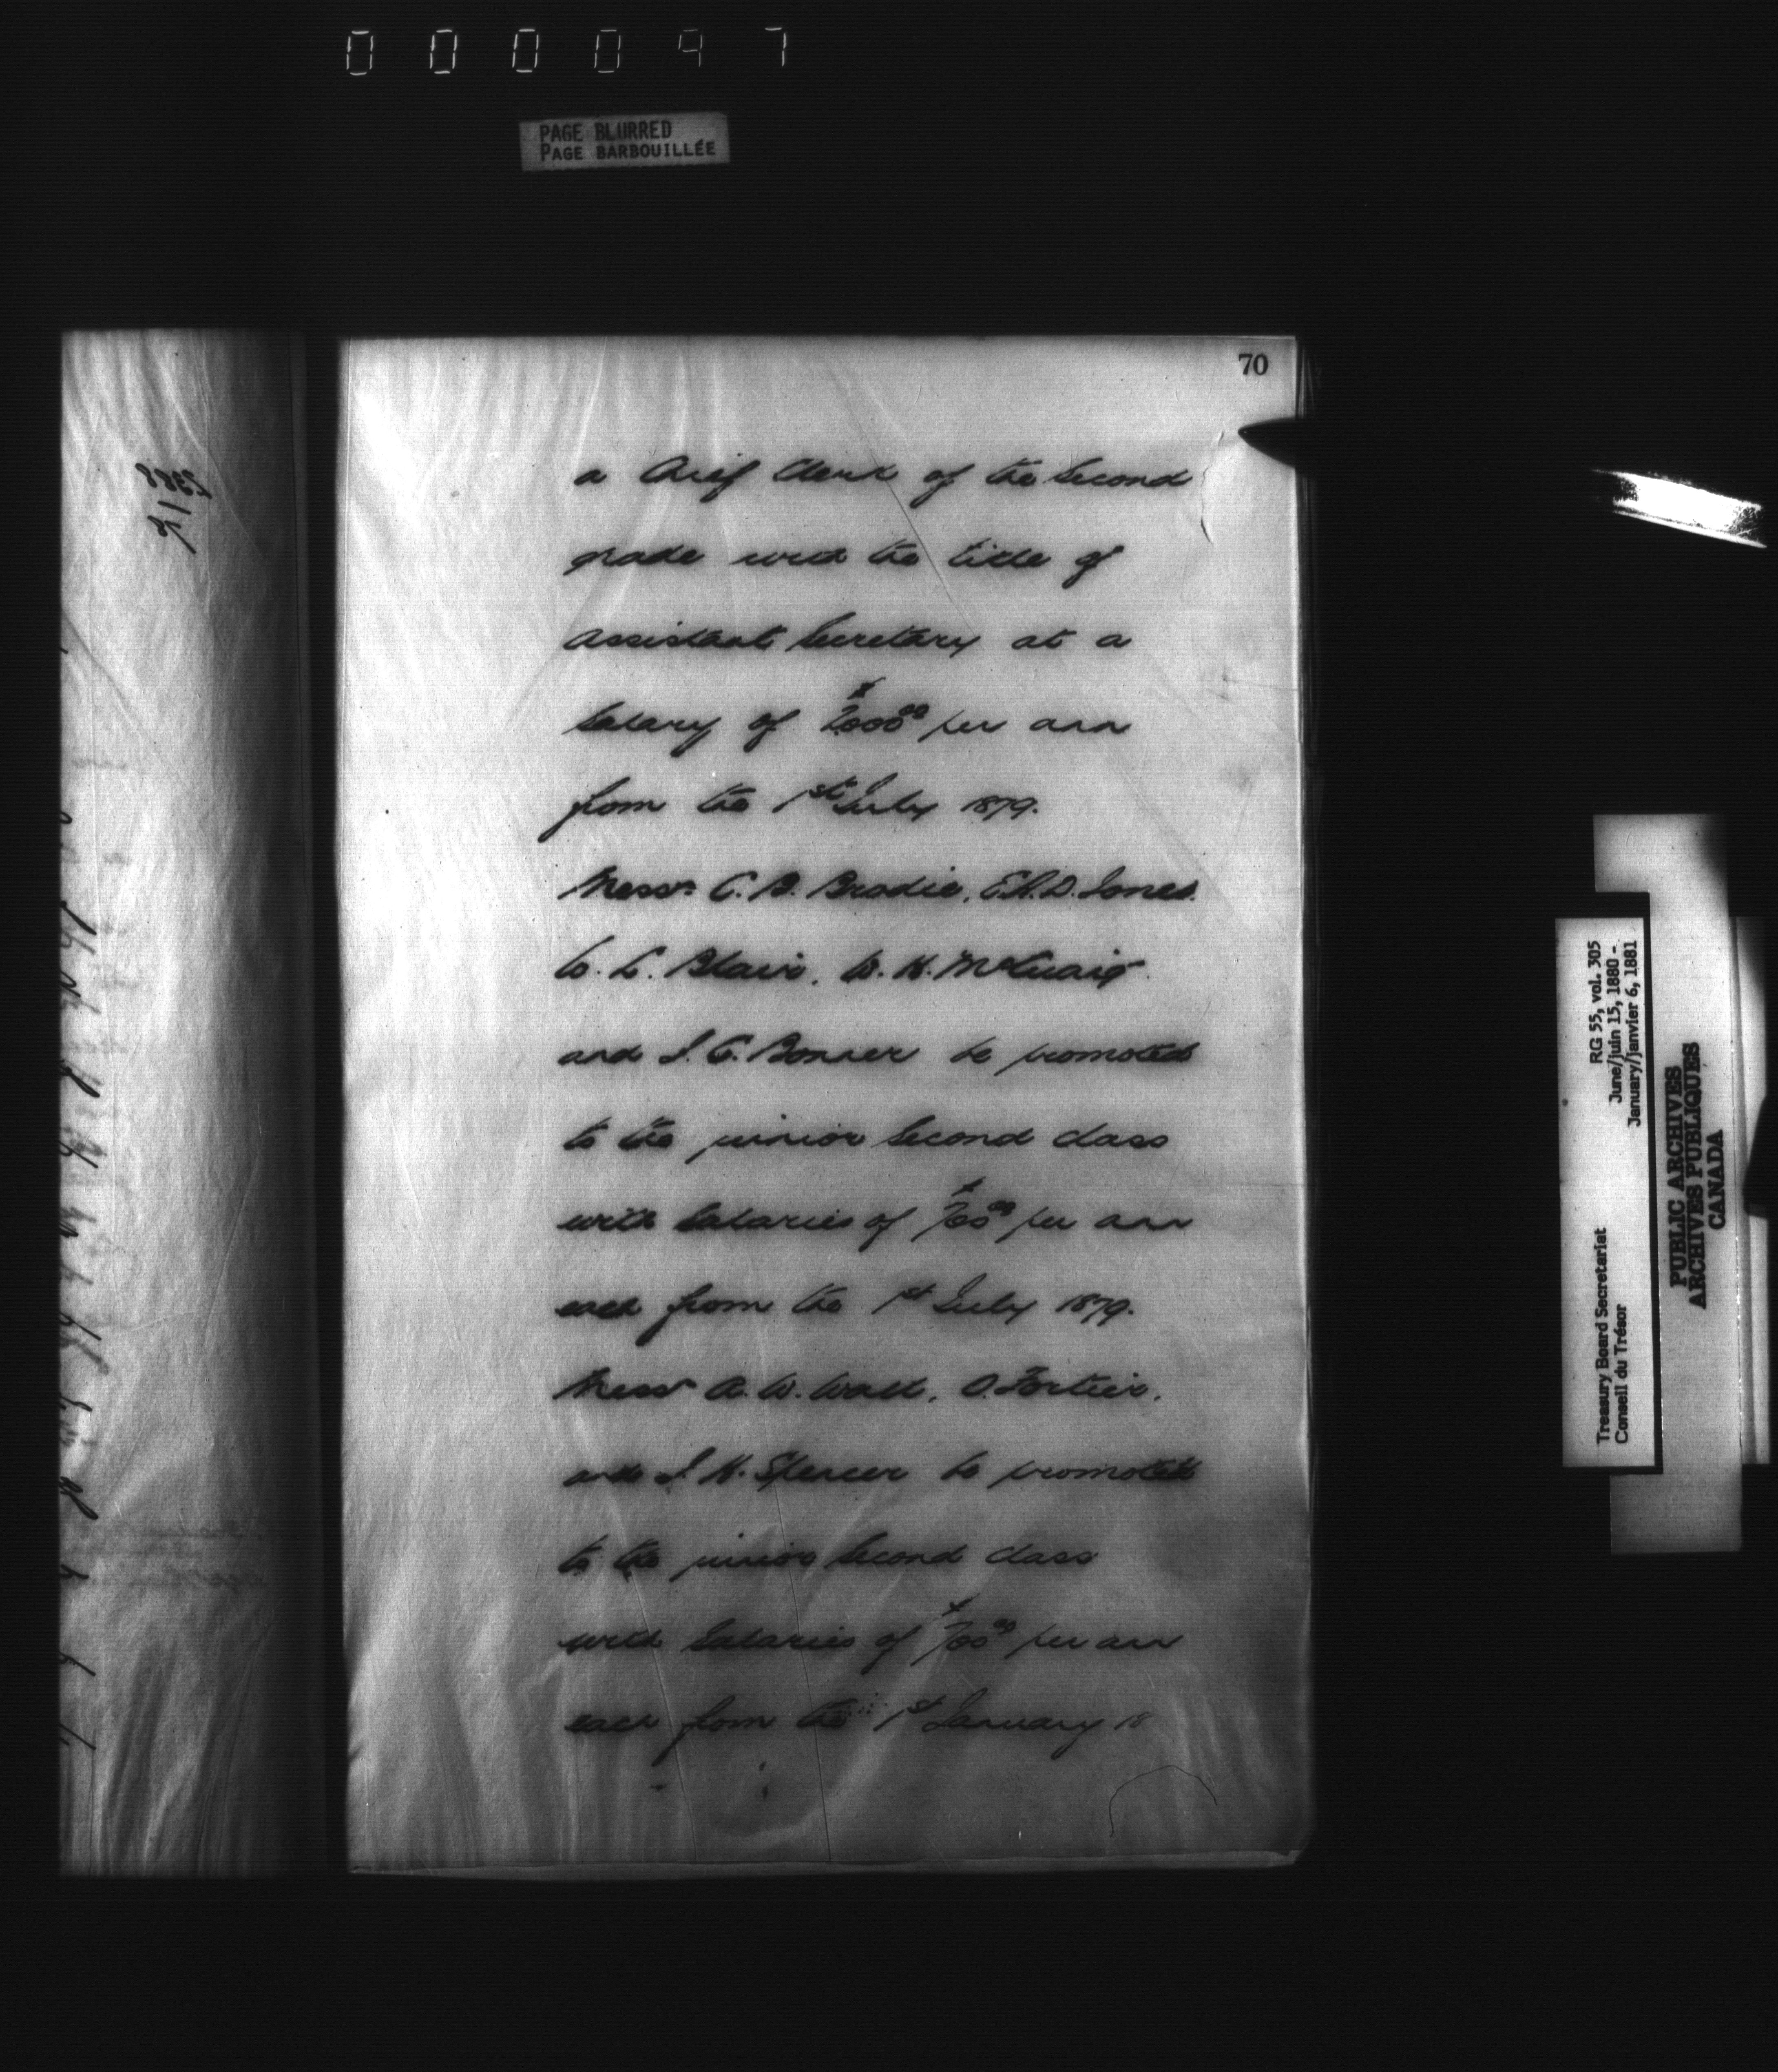 000097
PAGE BLURRED
PAGE BARBOUILLÉE
70
a Chief Clerk of the Second
grade with the title of
Assistant Secretary at a
Salary of $2000.00 per ann
from the 1st July 1879.
Messrs C. B. Brodie, E.R.D. Jones.
C. L. Blair, W. H. McCuaig
and J. C. Bonner be promoted
to the junior Second class
with Salaries of $700.00 per ann
each from the 1st July 1879.
Messrs A. W. Wall, O. Fortier,
and J. H. Spencer be promoted
to the junior Second class
with Salaries of $700.00 per ann
each from the 1st January 18
RG 55, vol. 305
June/juin 15, 1880 -
January/janvier 6, 1881
Treasury Board Secretariat
Conseil du Trésor
PUBLIC ARCHIVES
ARCHIVES PUBLIQUES
CANADA